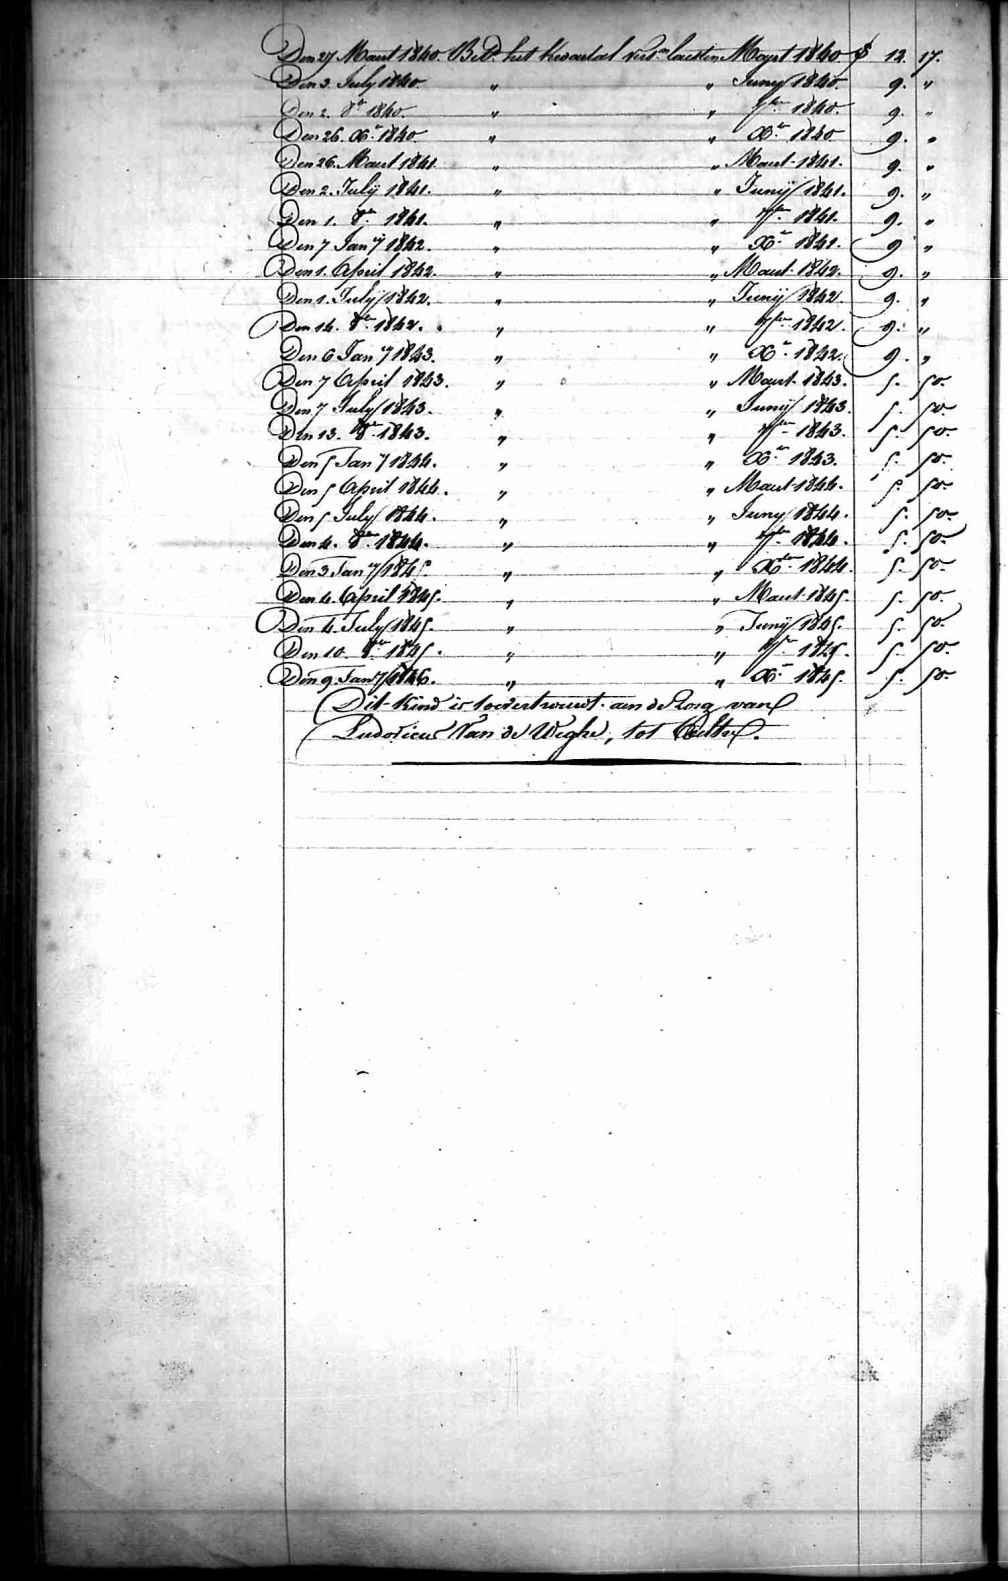 Den 27 Maart 1840. Bet.d het kwartaal verst. laetsten Maart 1840 $ 12. 17.
Den 3. July 1840. " " Juny 1840. 9. "
Den 2. 8.re 1840. " " 7.bre 1840. 9. "
Den 26. X.r 1840 " " X.re 1840 9. "
Den 26. Maart 1841 " " Maart 1841. 9. "
Den 2. July 1841. " " Junij 1841. 9. "
Den 1. 8.re 1841. " " 7.bre 1841. 9. "
Den 7 Jan.y 1842. " " X.re 1841. 9 "
Den 1. April 1842. " " Maart 1842. 9. "
Den 1. July 1842. " " Junij 1842 9. "
Den 14. 8.re 1842. " " 7.bre 1842. 9. "
Den 6 Jan.y 1843. " " X.re 1842. 9. "
Den 7 April 1843. " " Maart 1843. 5. 50.
Den 7 July 1843. " " Junij 1843. 5. 50.
Den 13. 8.re 1843. " " 7.bre 1843. 5. 50.
Den 5 Jan.y 1844. " " X.re 1843. 5. 50.
Den 5 April 1844. " " Maart 1844. 5. 50.
Den 5 July 1844. " " Juny 1844. 5. 50.
Den 4. 8.re 1844. " " 7.bre 1844. 5. 50.
Den 3 Jan.y 1845. " " X.re 1844. 5. 50.
Den 4. April 1845. " " Maart 1845. 5. 50.
Den 4. July 1845. " " Junij 1845. 5. 50.
Den 10. 8.re 1845. " " 7.bre 1845. 5. 50.
Den 9 Jan.y 1846. " " X.re 1845. 5. 50.
Dit Kind is toevertrouwt aen de Zorg van
Ludovicus Van de Weghe, tot